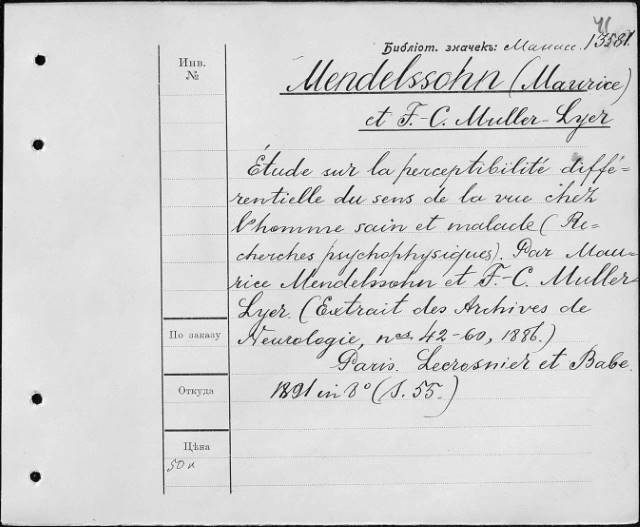 41
Библіот. значекъ: 13581.
Инв.
№
Mendelssohn (Maurice)
et F.-C. Muller-Lyer
Étude sur la perceptibilité diffé=
rentielle du sens de la vue chez
l'homme sain et malade (Re=
cherches psychophysiques). Par Mau=
rice Mendelssohn et F.-C. Muller-
Lyer. (Extrait des Archives de
По заказу
Neurologie, nos. 42-60, 1886.)
Paris. Lecrosnier et Babe.
Откуда
1891 in 8° (S. 55.)
Цѣна
50 к